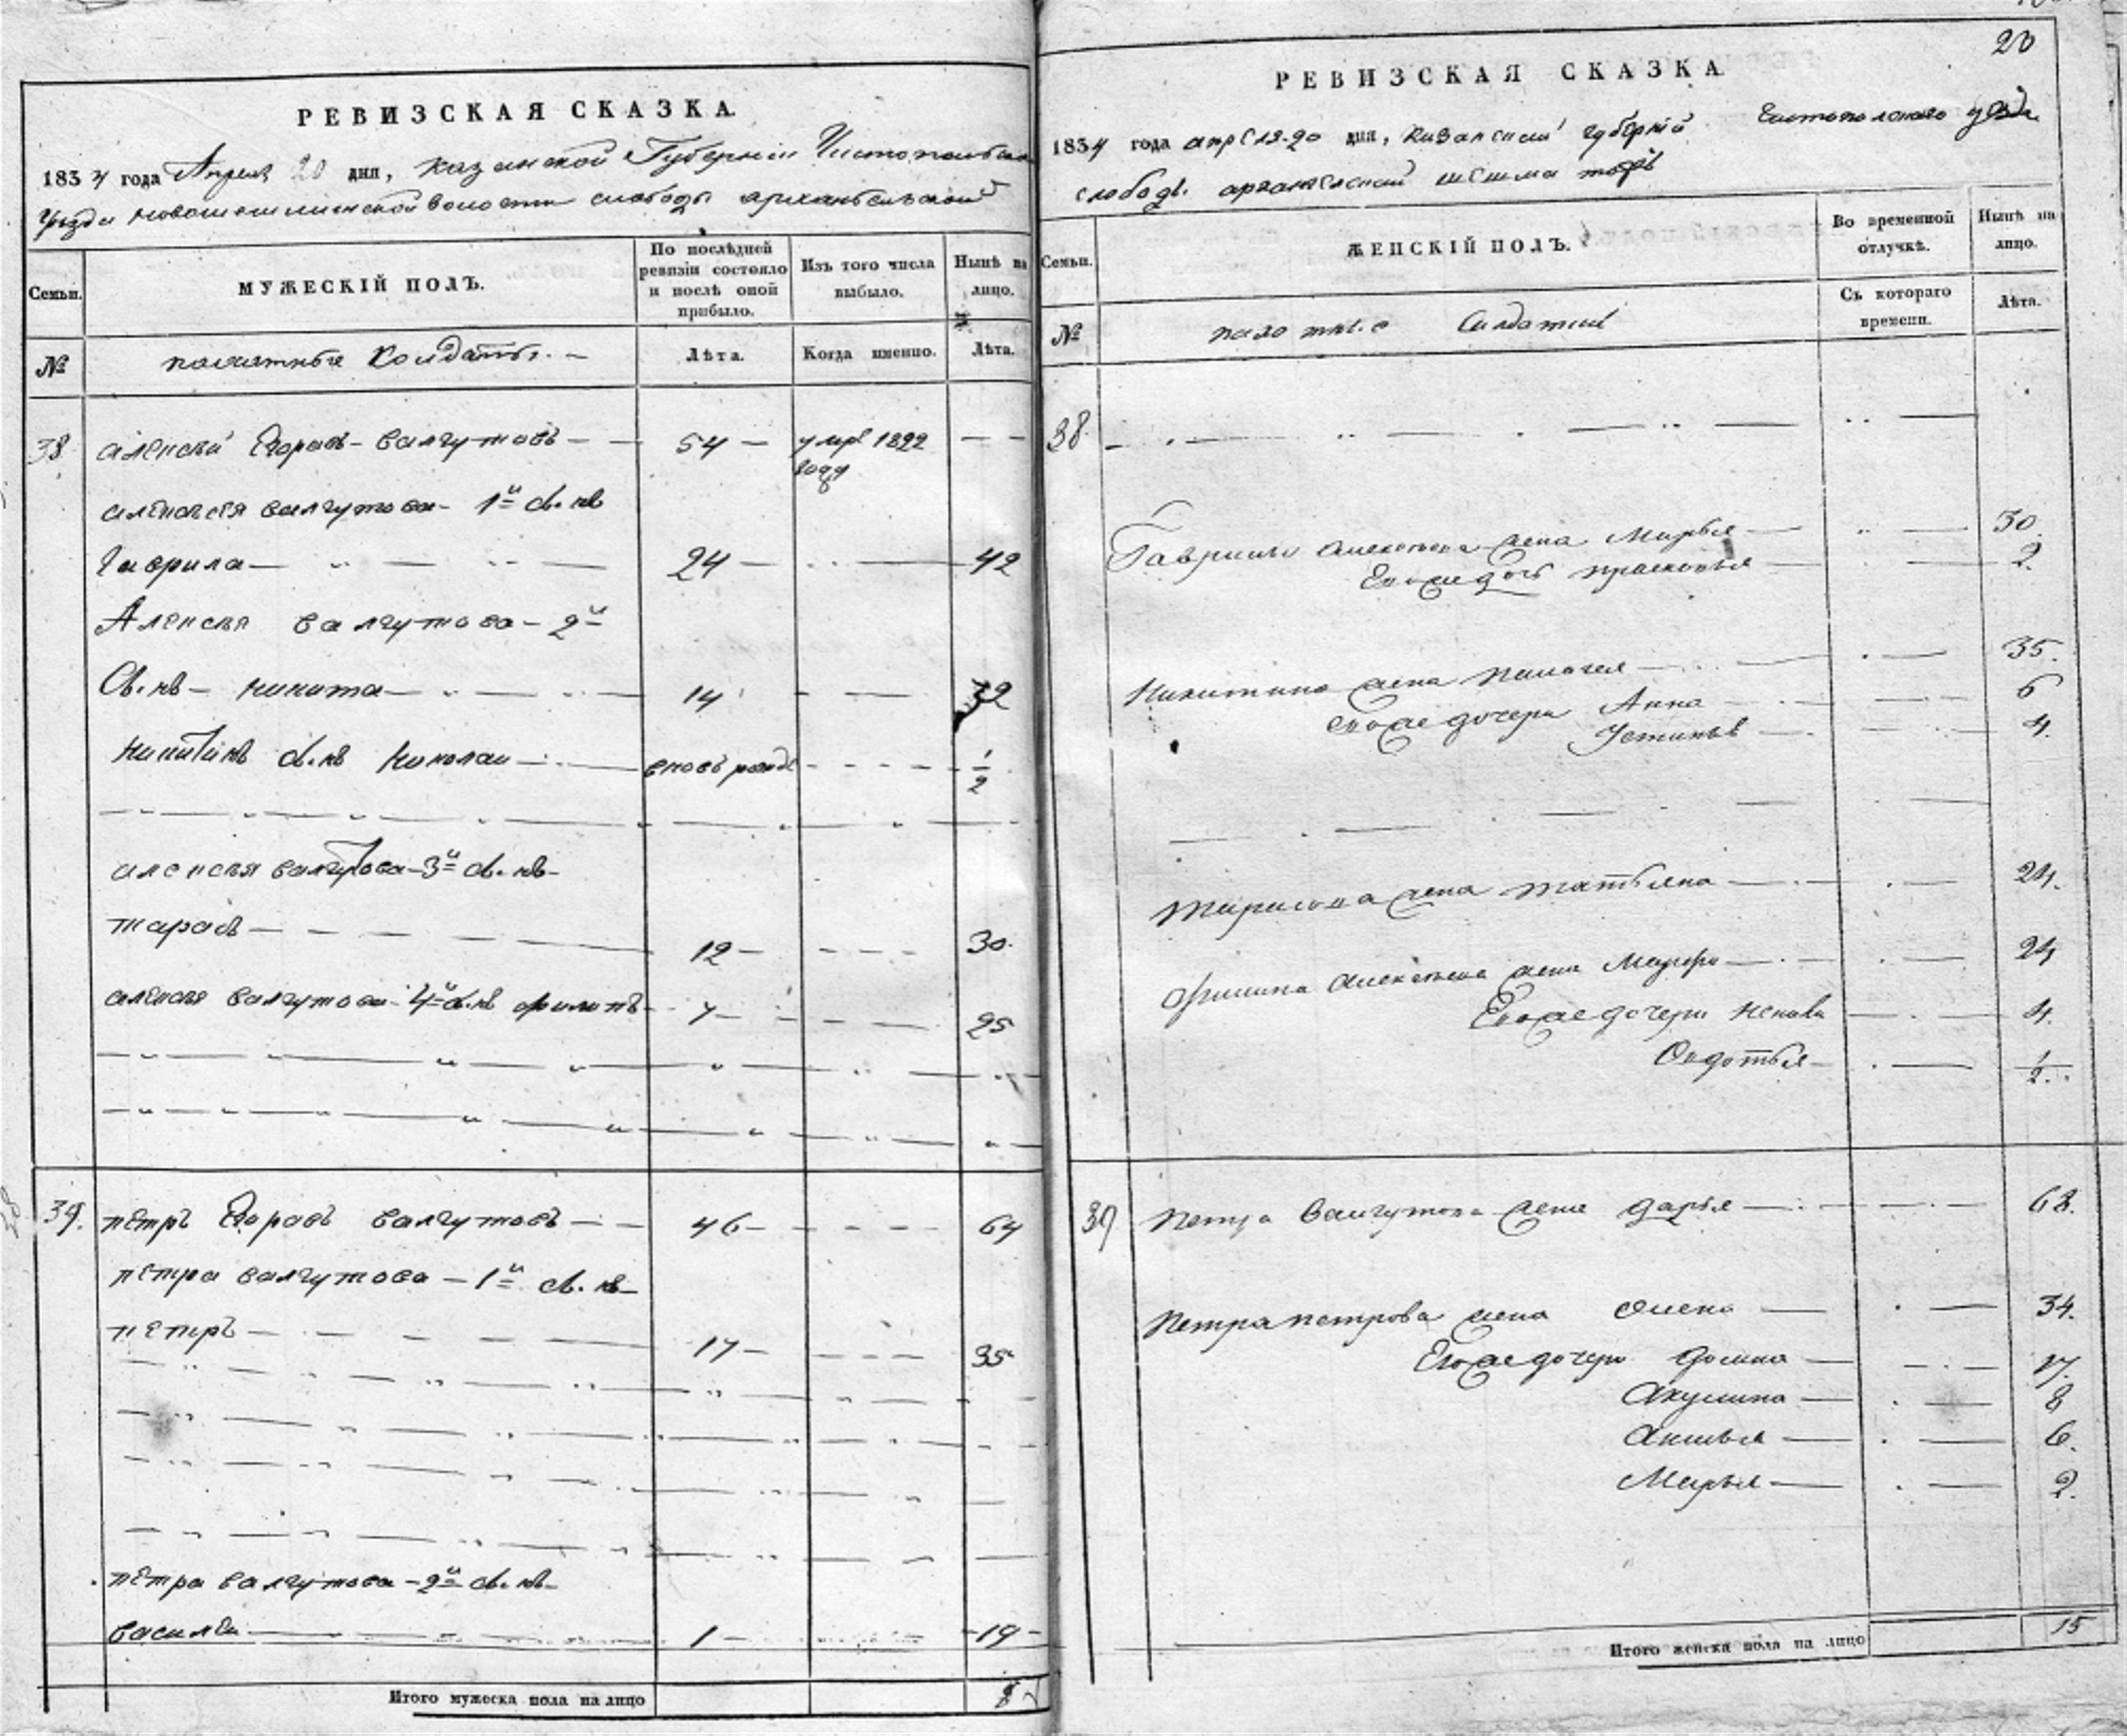 РЕВИЗСКАЯ СКАЗКА.
1834 года Апреля 20 дня, Казанской Губернии Чистопольска
Уезда новошешминской волости слободы архангельской
Семьи.
МУЖЕСКІЙ ПОЛЪ.
По послѣдней ревизіи состояло и послѣ оной прибыло.
Изъ того числа выбыло.
Нынѣ на лицо.
№
пахатныя Солдаты. -
Лѣта.
Когда именно.
Лѣта.
38 алексей Егоравъ - валгутовъ - 54 - умре 1822 году - -
алексея валгутова - 1й сынъ
гаврила - 24 - 42
Алексея валгутова - 2й
Сынъ - никита - 14 - 32
никитинъ сынъ николаи - вновь рожд - 1/2
алексея валгутова - 3й сынъ -
тарасъ - 12 - 30.
алексея валгутова - 4й сынъ филипъ - 7 - 25
39. петръ Егоравъ валгутовъ - 46 - 64
петра валгутова - 1й сынъ -
петръ - 17 - 35
петра валгутова - 2й сынъ -
василеи - 1 - 19 -
Итого мужеска пола на лицо 8
20
РЕВИЗСКАЯ СКАЗКА
1834 года апреля 20 дня, Казанской губерніи Чистопольского уезда
слободы архангельской шешмы тожъ
Семьи.
ЖЕНСКІЙ ПОЛЪ.
Во временной отлучкѣ.
Нынѣ на лицо.
№
Солдатки
Съ котораго времени.
Лѣта.
38
Гаврилы алексеева жена Марья - 30.
Ево же дочь прасковья - 2.
Никитина жена пелагея - 35.
ево же дочери Анна - 6
Устинья - 4.
Тарасова жена татьяна - 24.
филипа алексеева жена Мавра - 24
Ево же дочери - 4.
Овдотья - 1/2.
39 Петра Валгутова жена дарья - 68.
Петра петрова жена олена - 34.
Ево же дочери домна - 17.
Акулина - 8
Аксинья - 6.
Марья - 2.
Итого женска пола на лицо 15